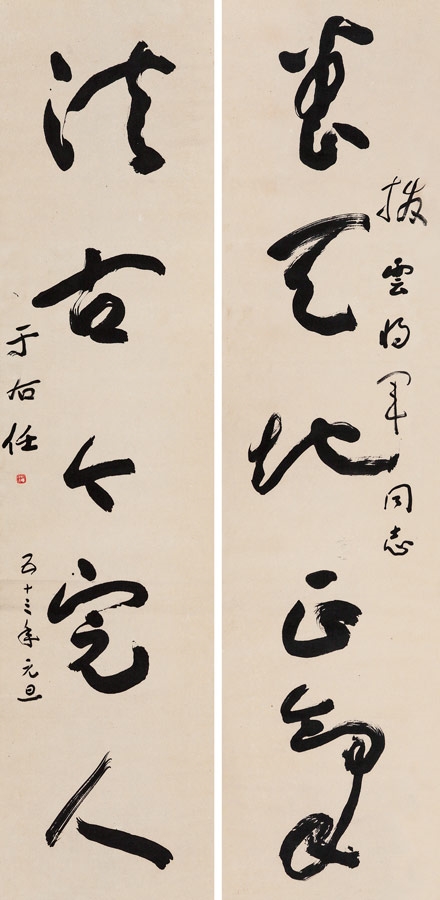 撥雲將軍同志
養天地正氣
法古今完人
于右任
五十三年元旦